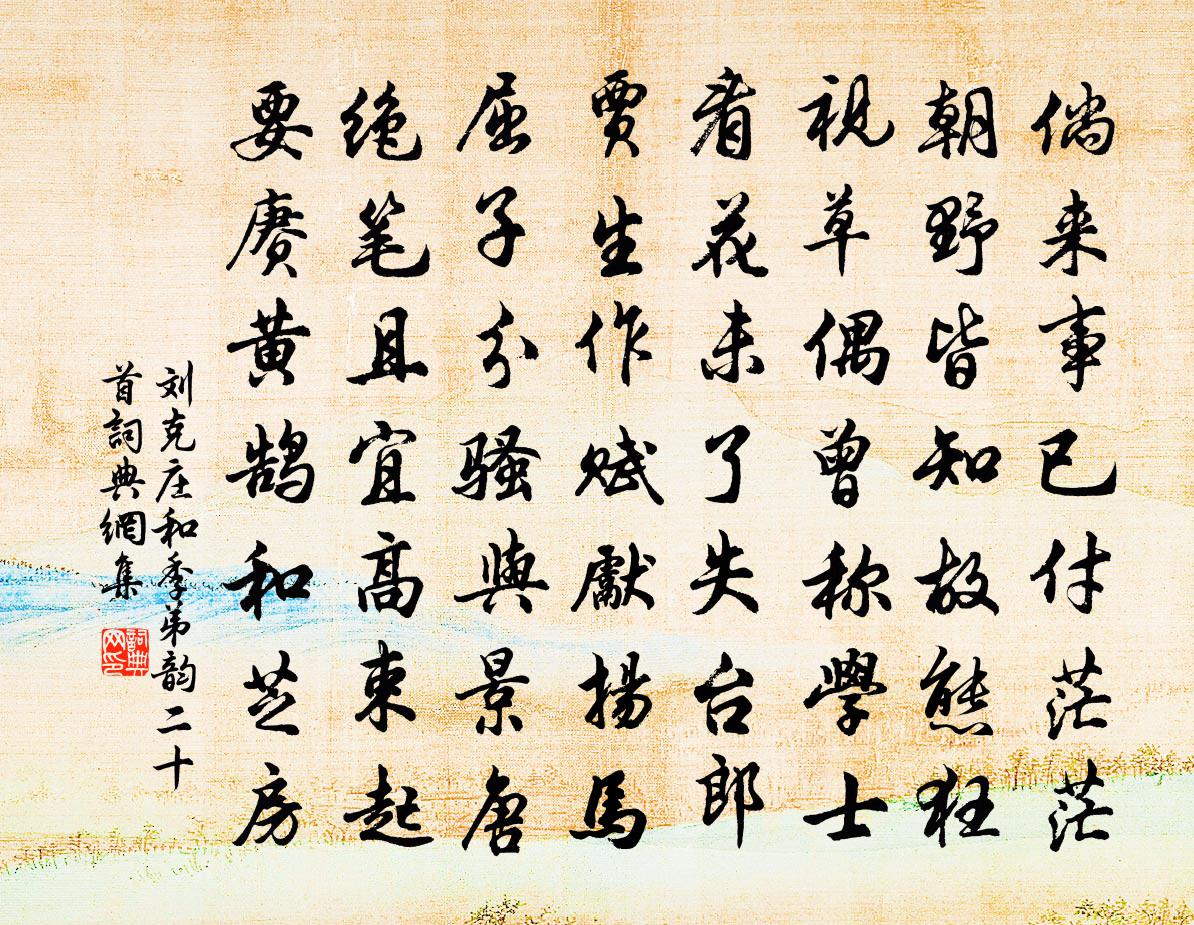 倘来事已付茫茫
朝野皆知故態狂
視草偶曾称學士
看花未了失台郎
賈生作賦獻揚馬
屈子分騷與景唐
绝笔且宜高束起
要赓黄鹄和芝房
刘克庄和季弟韵二十
首詞典網集
詞典网印